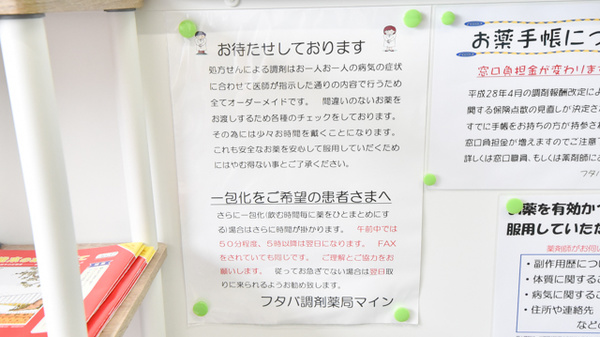 お待たせしております
処方せんによる調剤はお一人お一人の病気の症状
に合わせて医師が指示した通りの内容で行うため
全てオーダーメイドです。 間違いのないお薬を
お渡しするため各種のチェックをしております。
その為には少々お時間を戴くことになります。
これも安全なお薬を安心して服用していただくため
にはやむ得ない事とご了承ください。
一包化をご希望の患者さまへ
さらに一包化(飲む時間毎に薬をひとまとめにす
る)場合はさらに時間が掛かります。 午前中では
50分程度、5時以降は翌日になります。 FAX
をされていても同じです。 ご理解とご協力をお
願いします。 従ってお急ぎでない場合は翌日取
りに来られるようお勧め致します。
フタバ調剤薬局マイン
お薬手帳につ
窓口負担金が変わります
平成28年4月の調剤報酬改定によ
関する保険点数の見直しが決定さ
すでに手帳をお持ちの方が持参され
窓口負担金が増えますのでご注意下
詳しくは窓口職員、もしくは薬剤師によ
フタバ
お薬を有効かつ
服用していただ
薬剤師がお伺い
・副作用歴につい
・体質に関するこ
・病気に関するこ
・住所や連絡先
などの